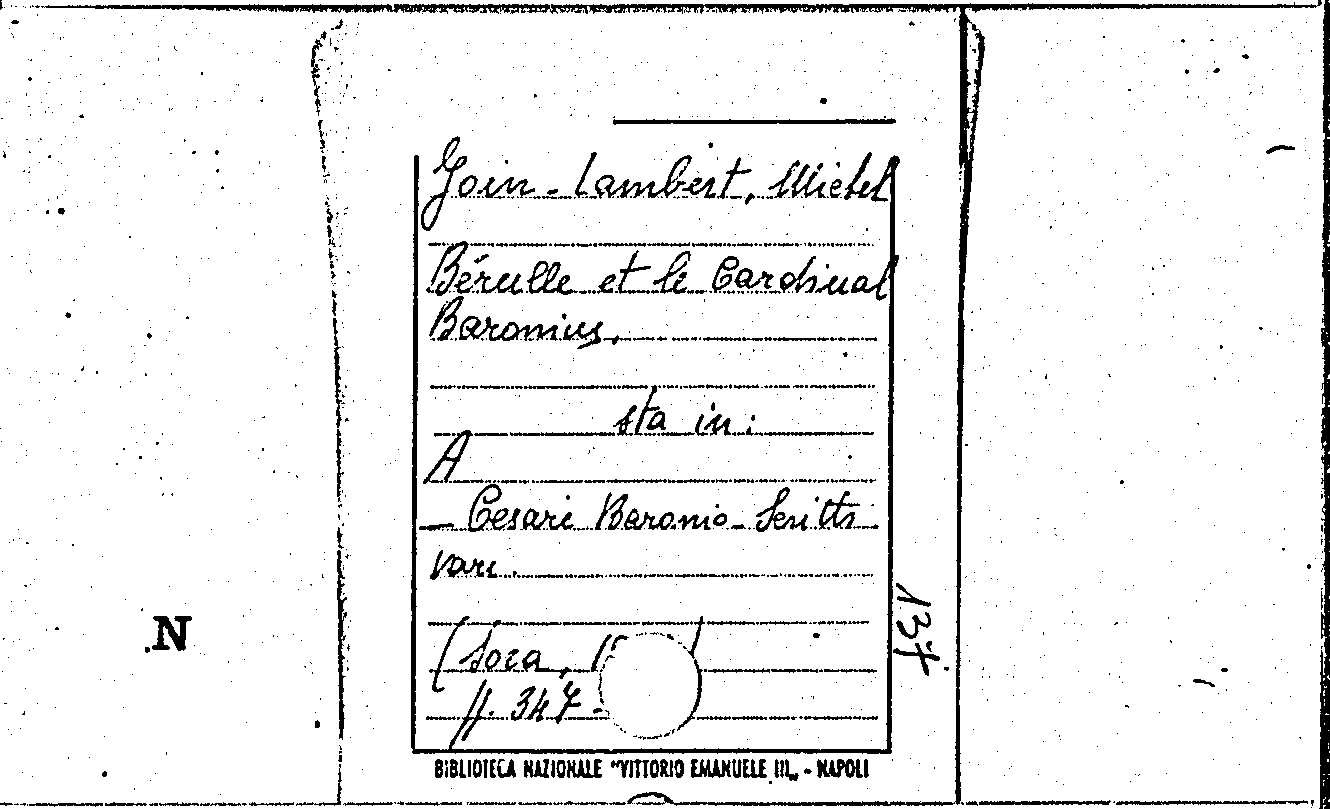 Join-Lambert, Michel
Bérulle et le Cardinal
Baronius.
sta in:
A
— Cesare Baronio - Scritti
vari.
(Sora, 
ff. 347 -
137
N
BIBLIOTECA NAZIONALE "VITTORIO EMANUELE III„ - NAPOLI